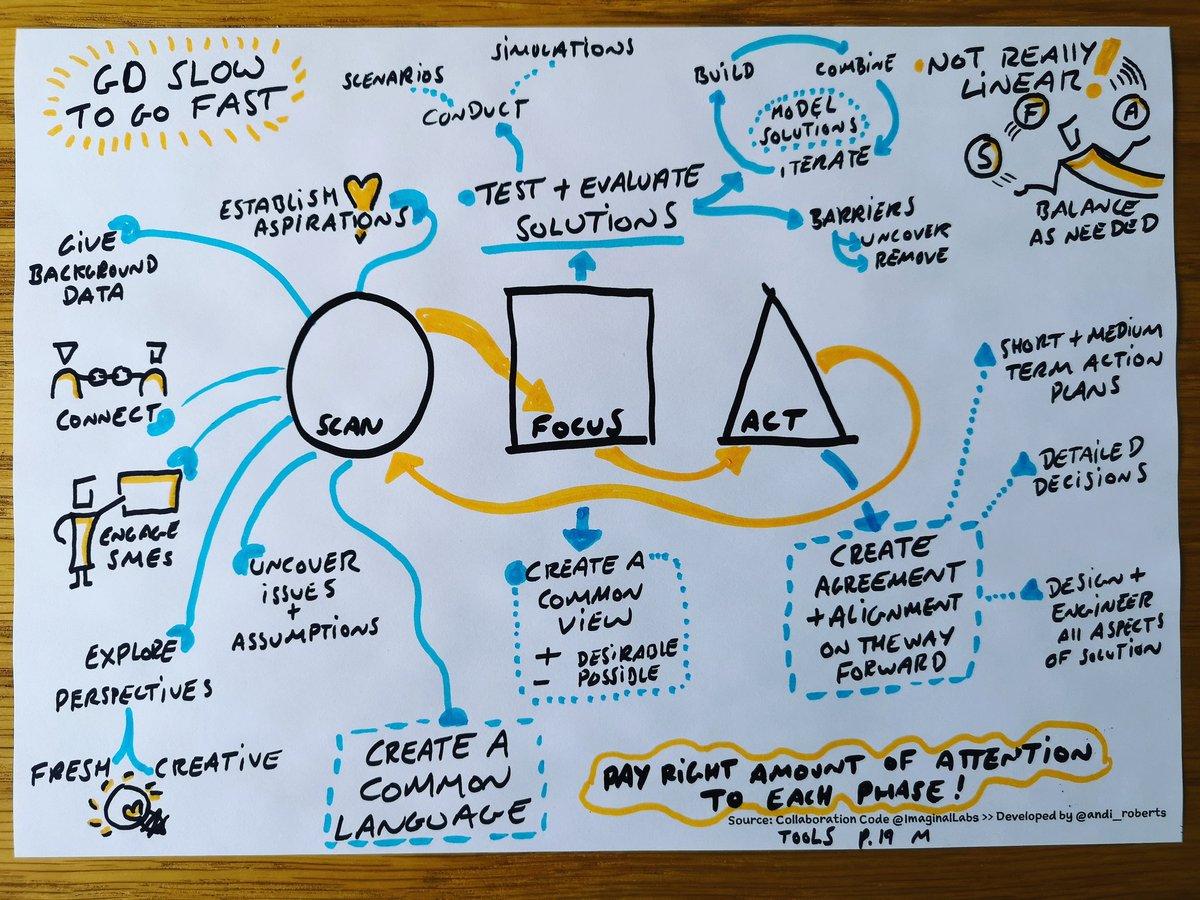 GO SLOW
TO GO FAST
SIMULATIONS
SCENARIOS
CONDUCT
BUILD
COMBINE
MODEL
SOLUTIONS
ITERATE
NOT REALLY
LINEAR!
F
A
S
BALANCE
AS NEEDED
ESTABLISH
ASPIRATIONS
TEST + EVALUATE
SOLUTIONS
BARRIERS
UNCOVER
REMOVE
GIVE
BACKGROUND
DATA
CONNECT
ENGAGE
SMES
SCAN
FOCUS
ACT
SHORT + MEDIUM
TERM ACTION
PLANS
DETAILED
DECISIONS
DESIGN +
ENGINEER
All ASPECTS
OF SOLUTION
UNCOVER
ISSUES
+
ASSUMPTIONS
CREATE A
COMMON
VIEW
+ DESIRABLE
- POSSIBLE
CREATE
AGREEMENT
+ ALIGNMENT
ON THE WAY
FORWARD
EXPLORE
PERSPECTIVES
FRESH - CREATIVE
CREATE A
COMMON
LANGUAGE
PAY RIGHT AMOUNT OF ATTENTION
TO EACH PHASE!
Source: Collaboration Code @ImaginalLabs >> Developed by @andi_roberts
TOOLS P.19 M